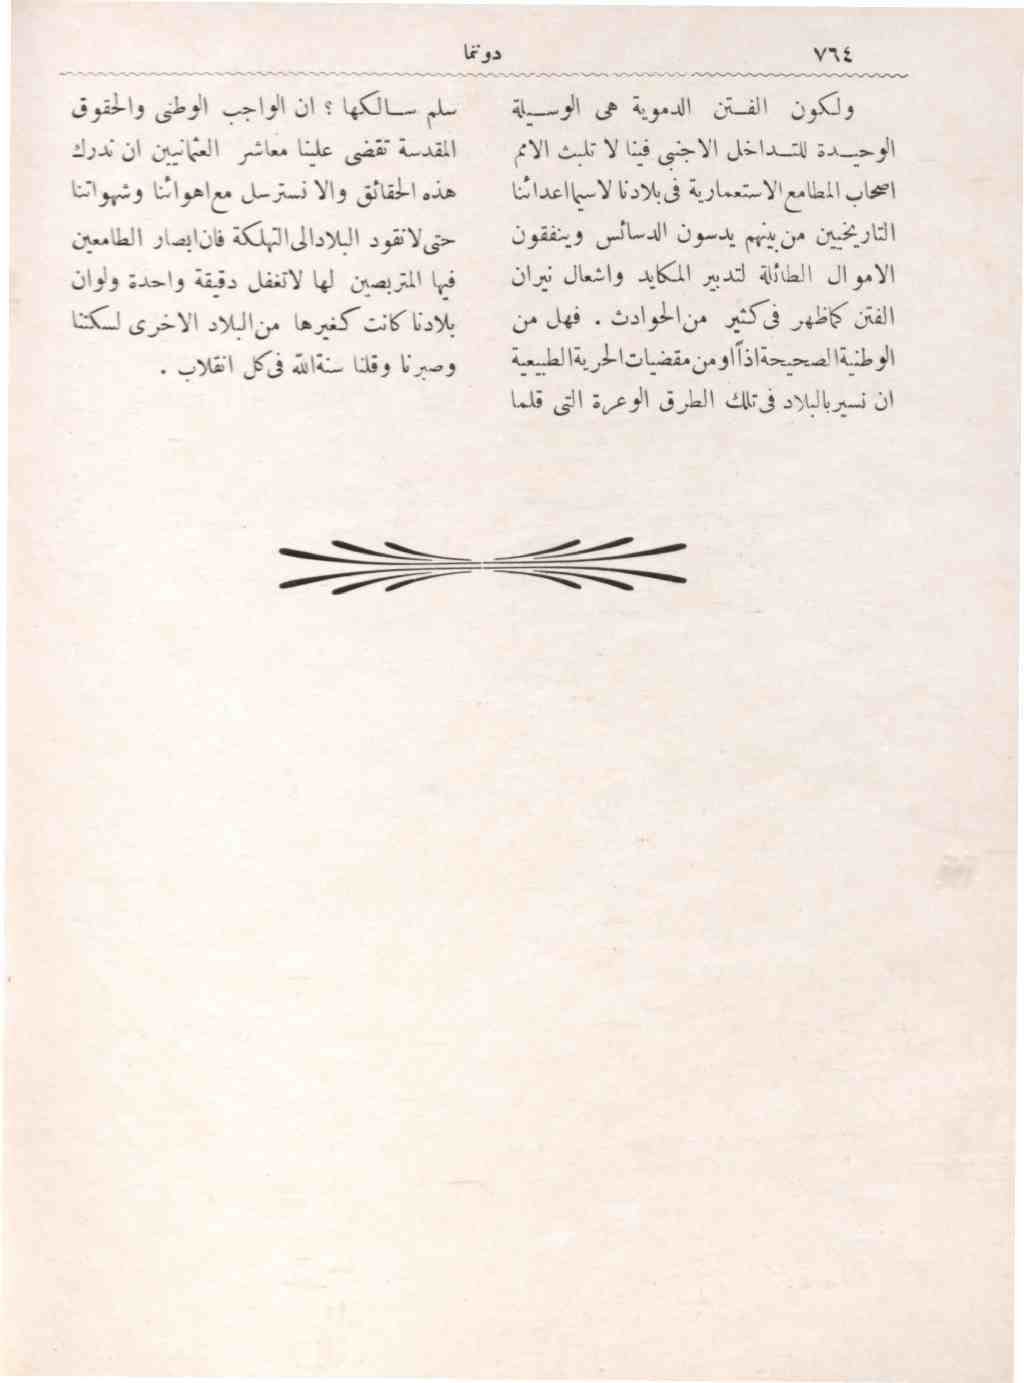 ٧٦٤
دوننما
ولكون الفتن الدموية هى الوسيلة
الوحيدة للتداخل الاجنبى فينا لا تلبث الامم
اصحاب المطامع الاستعمارية فى بلادنا لاسيما اعدائنا
التاريخيين من بينهم يدسون الدسائس وينفقون
الاموال الطائلة لتدبير المكايد واشعال نيران
الفتن كماظهر فى كثير من الحوادث . فهل من
الوطنية الصحيحة اذاً اومن مقضيات الحرية الطبيعية
ان نسير بالبلاد فى تلك الطرق الوعرة التى قلما
سلم سالكها ؟ ان الواجب الوطنى والحقوق
المقدسة تقضى علينا معاشر العثمانيين ان ندرك
هذه الحقائق والا نسترسل مع اهوائنا وشهواتنا
حتى لانقود البلاد الى التهلكة فان ابصار الطامعين
فيها المتربصين لها لاتغفل دقيقة واحدة ولوان
بلادنا كانت كغيرها من البلاد الاخرى لسكتنا
وصبرنا وقلنا سنة الله فى كل انقلاب .